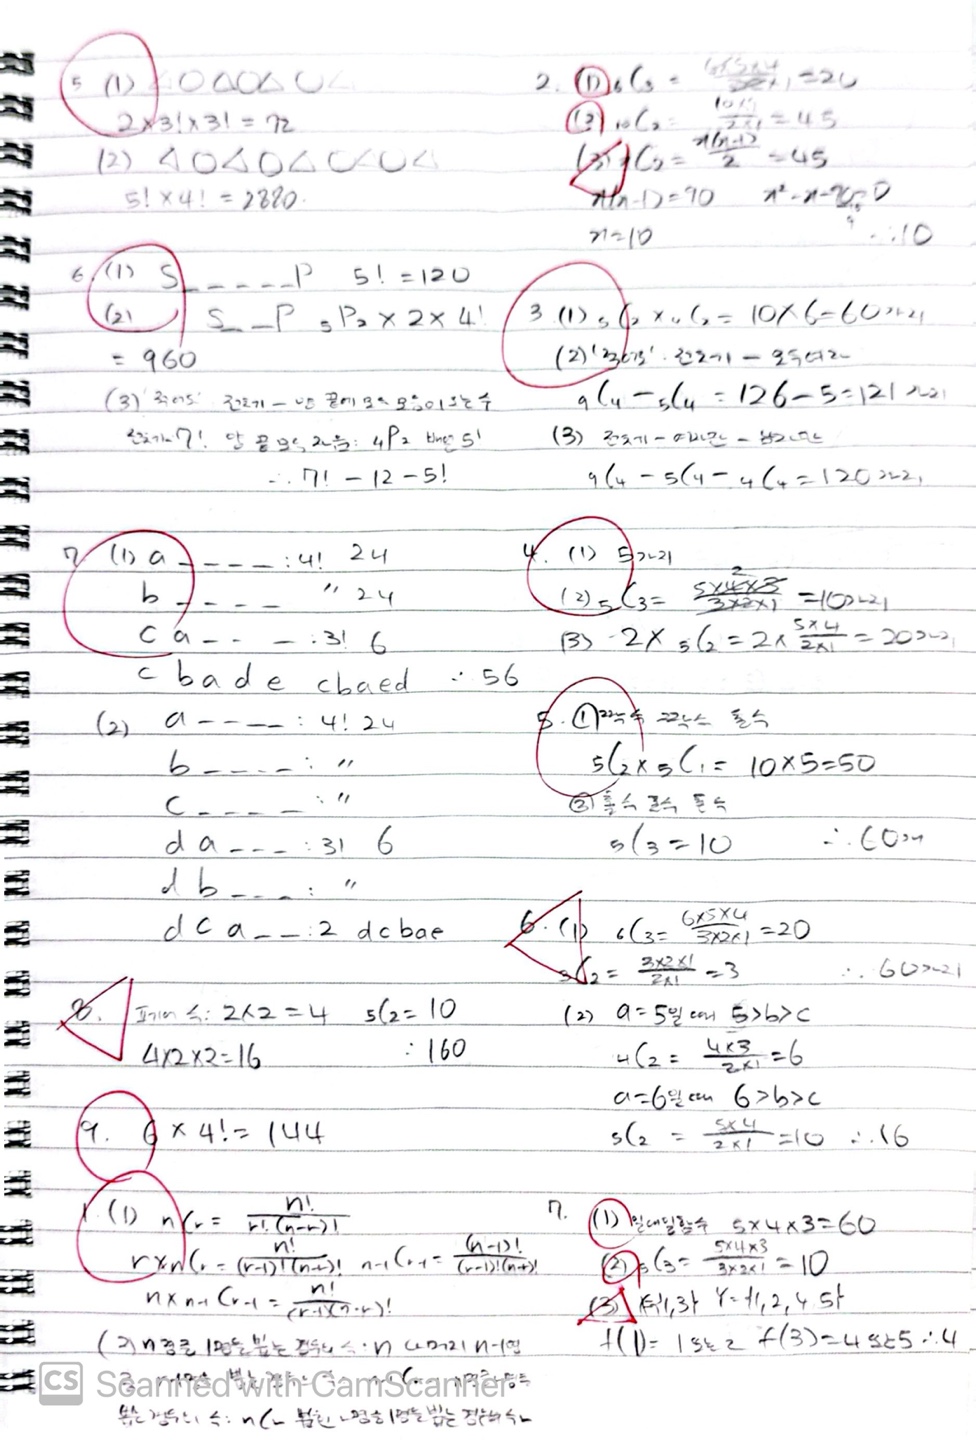 5 (1) △○△○△○△
2×3!×3! = 72
(2) △○△○△○△○△
5! × 4! = 2880.
6. (1) S _ _ _ _ _ P 5! = 120
(2) S _ _ P 5P2 × 2 × 4!
= 960
(3) '적어도' 전체가 - 양 끝에 모두 모음이 오는 수
전체가 7! 양 끝 모두 모음: 4P2 5!
∴ 7! - 12 - 5!
7 (1) a _ _ _ _ : 4! 24
b _ _ _ _ " 24
c a _ _ _ : 3! 6
c b a d e cbaed ∴ 56
(2) a _ _ _ _ : 4! 24
b _ _ _ _ : "
c _ _ _ _ : "
d a _ _ _ : 3! 6
d b _ _ _ : "
d c a _ _ : 2 dcbae
8. 수: 2×2 = 4 5C2 = 10
4×2×2 = 16 ∴ 160
9. 6 × 4! = 144
1. (1) nCr = n! / r!(n-r)!
r×nCr = n! / (r-1)!(n-r)! n-1Cr-1 = (n-1)! / (r-1)!(n-r)!
n×n-1Cr-1 = n! / (r-1)!(n-r)!
(2) n명중 1명을 뽑는 경우의 수: n 나머지 n-1명
뽑는 경우의 수: nCr 뽑힌 r명중 1명을 뽑는 경우의 수 r
2. (1) 6C3 = 6×5×4 / 3×2×1 = 20
(2) 10C2 = 10×9 / 2×1 = 45
(3) nC2 = n(n-1) / 2 = 45
n(n-1) = 90 n²-n-90=0
n=10 ∴ 10
3 (1) 5C2 × 4C2 = 10×6 = 60가지
(2) '적어도' 전체가 - 모두 여자
9C4 - 5C4 = 126-5 = 121가지
(3) 전체가 - 여자만 - 남자만
9C4 - 5C4 - 4C4 = 120가지
4. (1) 5가지
(2) 5C3 = 5×4×3 / 3×2×1 = 10가지
(3) 2× 5C2 = 2× 5×4 / 2×1 = 20가지
5. ① 짝수 짝수 홀수
5C2 × 5C1 = 10×5 = 50
② 홀수 홀수 홀수
5C3 = 10 ∴ 60개
6. (1) 6C3 = 6×5×4 / 3×2×1 = 20
3C2 = 3×2×1 / 2×1 = 3 ∴ 60가지
(2) a=5일 때 5>b>c
4C2 = 4×3 / 2×1 = 6
a=6일 때 6>b>c
5C2 = 5×4 / 2×1 = 10 ∴ 16
7. (1) 일대일함수 5×4×3=60
(2) 5C3 = 5×4×3 / 3×2×1 = 10
(3) X={1,3} Y={1,2,4,5}
f(1) = 1 또는 2 f(3)=4 또는 5 ∴ 4
CS Scanned with CamScanner